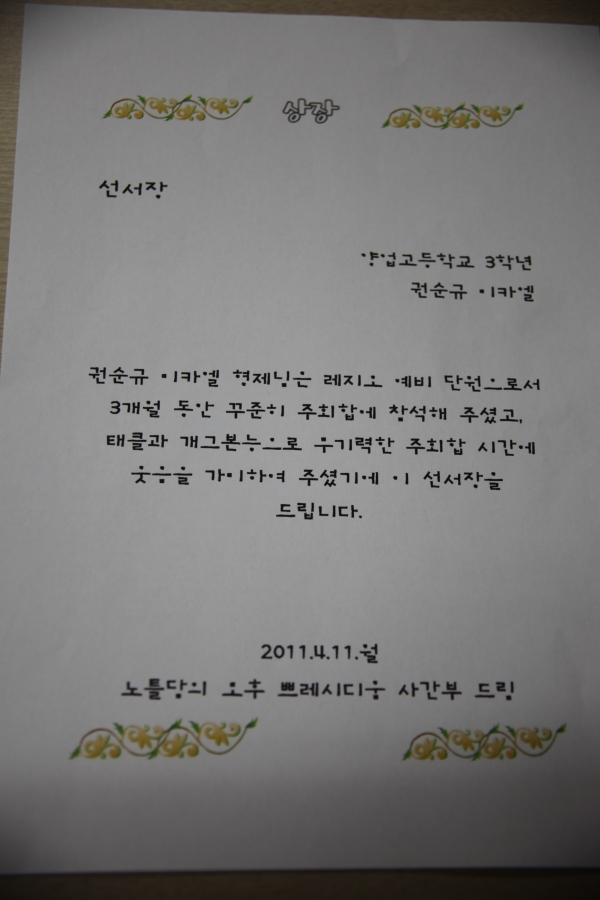 상장
선서장
양업고등학교 3학년
권순규 미카엘
권순규 미카엘 형제님은 레지오 예비 단원으로서
3개월 동안 꾸준히 주회합에 참석해 주셨고,
태클과 개그본능으로 무기력한 주회합 시간에
웃음을 가미하여 주셨기에 이 선서장을
드립니다.
2011.4.11.월
노틀담의 오후 쁘레시디움 사간부 드림